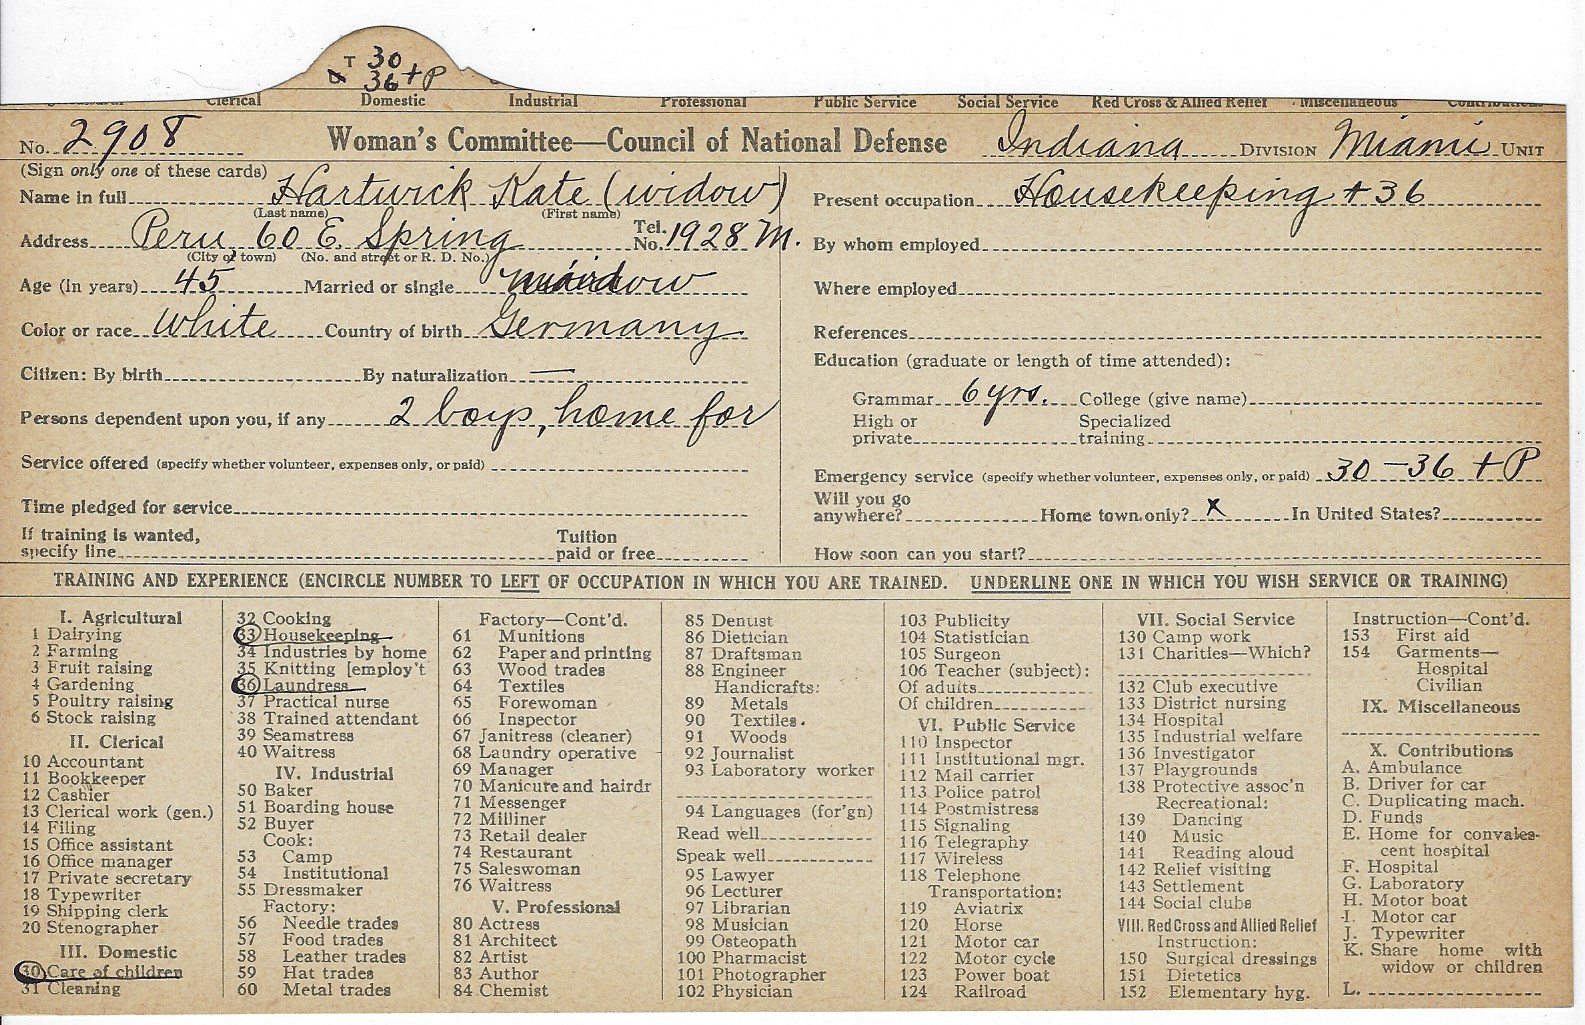 T 30
36 + P
Clerical Domestic Industrial Professional Public Service Social Service Red Cross & Allied Relief Miscellaneous Contributions
No. 2908 Woman's Committee—Council of National Defense Indiana DIVISION Miami UNIT
(Sign only one of these cards)
Name in full Hartwick Kate (widow)
(Last name) (First name)
Address Peru, 60 E. Spring Tel. No. 1928 M.
(City or town) (No. and street or R. D. No.)
Age (in years) 45 Married or single widow
Color or race White Country of birth Germany
Citizen: By birth By naturalization —
Persons dependent upon you, if any 2 boys, home for
Service offered (specify whether volunteer, expenses only, or paid)
Time pledged for service
If training is wanted, specify line Tuition paid or free
Present occupation Housekeeping + 36
By whom employed
Where employed
References
Education (graduate or length of time attended):
Grammar 6 yrs. College (give name)
High or private Specialized training
Emergency service (specify whether volunteer, expenses only, or paid) 30 – 36 + P
Will you go anywhere? Home town only? x In United States?
How soon can you start?
TRAINING AND EXPERIENCE (ENCIRCLE NUMBER TO LEFT OF OCCUPATION IN WHICH YOU ARE TRAINED. UNDERLINE ONE IN WHICH YOU WISH SERVICE OR TRAINING)
I. Agricultural
1 Dairying
2 Farming
3 Fruit raising
4 Gardening
5 Poultry raising
6 Stock raising
II. Clerical
10 Accountant
11 Bookkeeper
12 Cashier
13 Clerical work (gen.)
14 Filing
15 Office assistant
16 Office manager
17 Private secretary
18 Typewriter
19 Shipping clerk
20 Stenographer
III. Domestic
30 Care of children
31 Cleaning
32 Cooking
33 Housekeeping
34 Industries by home
35 Knitting [employ't
36 Laundress
37 Practical nurse
38 Trained attendant
39 Seamstress
40 Waitress
IV. Industrial
50 Baker
51 Boarding house
52 Buyer
Cook:
53 Camp
54 Institutional
55 Dressmaker
Factory:
56 Needle trades
57 Food trades
58 Leather trades
59 Hat trades
60 Metal trades
Factory—Cont'd.
61 Munitions
62 Paper and printing
63 Wood trades
64 Textiles
65 Forewoman
66 Inspector
67 Janitress (cleaner)
68 Laundry operative
69 Manager
70 Manicure and hairdr
71 Messenger
72 Milliner
73 Retail dealer
74 Restaurant
75 Saleswoman
76 Waitress
V. Professional
80 Actress
81 Architect
82 Artist
83 Author
84 Chemist
85 Dentist
86 Dietician
87 Draftsman
88 Engineer
Handicrafts:
89 Metals
90 Textiles.
91 Woods
92 Journalist
93 Laboratory worker
94 Languages (for'gn)
Read well
Speak well
95 Lawyer
96 Lecturer
97 Librarian
98 Musician
99 Osteopath
100 Pharmacist
101 Photographer
102 Physician
103 Publicity
104 Statistician
105 Surgeon
106 Teacher (subject):
Of adults
Of children
VI. Public Service
110 Inspector
111 Institutional mgr.
112 Mail carrier
113 Police patrol
114 Postmistress
115 Signaling
116 Telegraphy
117 Wireless
118 Telephone
Transportation:
119 Aviatrix
120 Horse
121 Motor car
122 Motor cycle
123 Power boat
124 Railroad
VII. Social Service
130 Camp work
131 Charities—Which?
132 Club executive
133 District nursing
134 Hospital
135 Industrial welfare
136 Investigator
137 Playgrounds
138 Protective assoc'n
Recreational:
139 Dancing
140 Music
141 Reading aloud
142 Relief visiting
143 Settlement
144 Social clubs
VIII. Red Cross and Allied Relief
Instruction:
150 Surgical dressings
151 Dietetics
152 Elementary hyg.
Instruction—Cont'd.
153 First aid
154 Garments—
Hospital
Civilian
IX. Miscellaneous
X. Contributions
A. Ambulance
B. Driver for car
C. Duplicating mach.
D. Funds
E. Home for convales-
cent hospital
F. Hospital
G. Laboratory
H. Motor boat
I. Motor car
J. Typewriter
K. Share home with
widow or children
L.